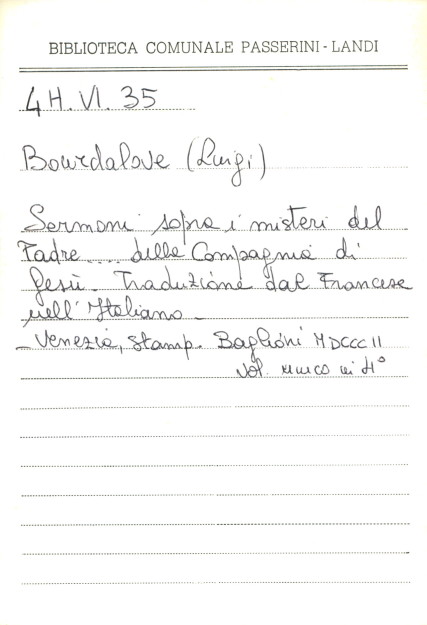 BIBLIOTECA COMUNALE PASSERINI - LANDI
4H. VI. 35
Bourdalove (Luigi)
Sermoni sopra i misteri del
Padre .... della Compagnia di
Gesù. Traduzione dal Francese
nell'Italiano -
- Venezia, stamp. Baglioni MDCCCII
vol. unico in 4°